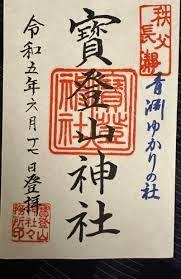 秩父
長瀞
青淵ゆかりの社
寳登山神社
令和五年六月十七日登拝
寳登山
神社々
務所印